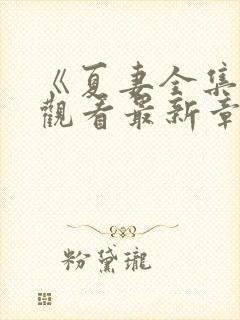 《夏妻全集
觀看最新章
粉黛瓏